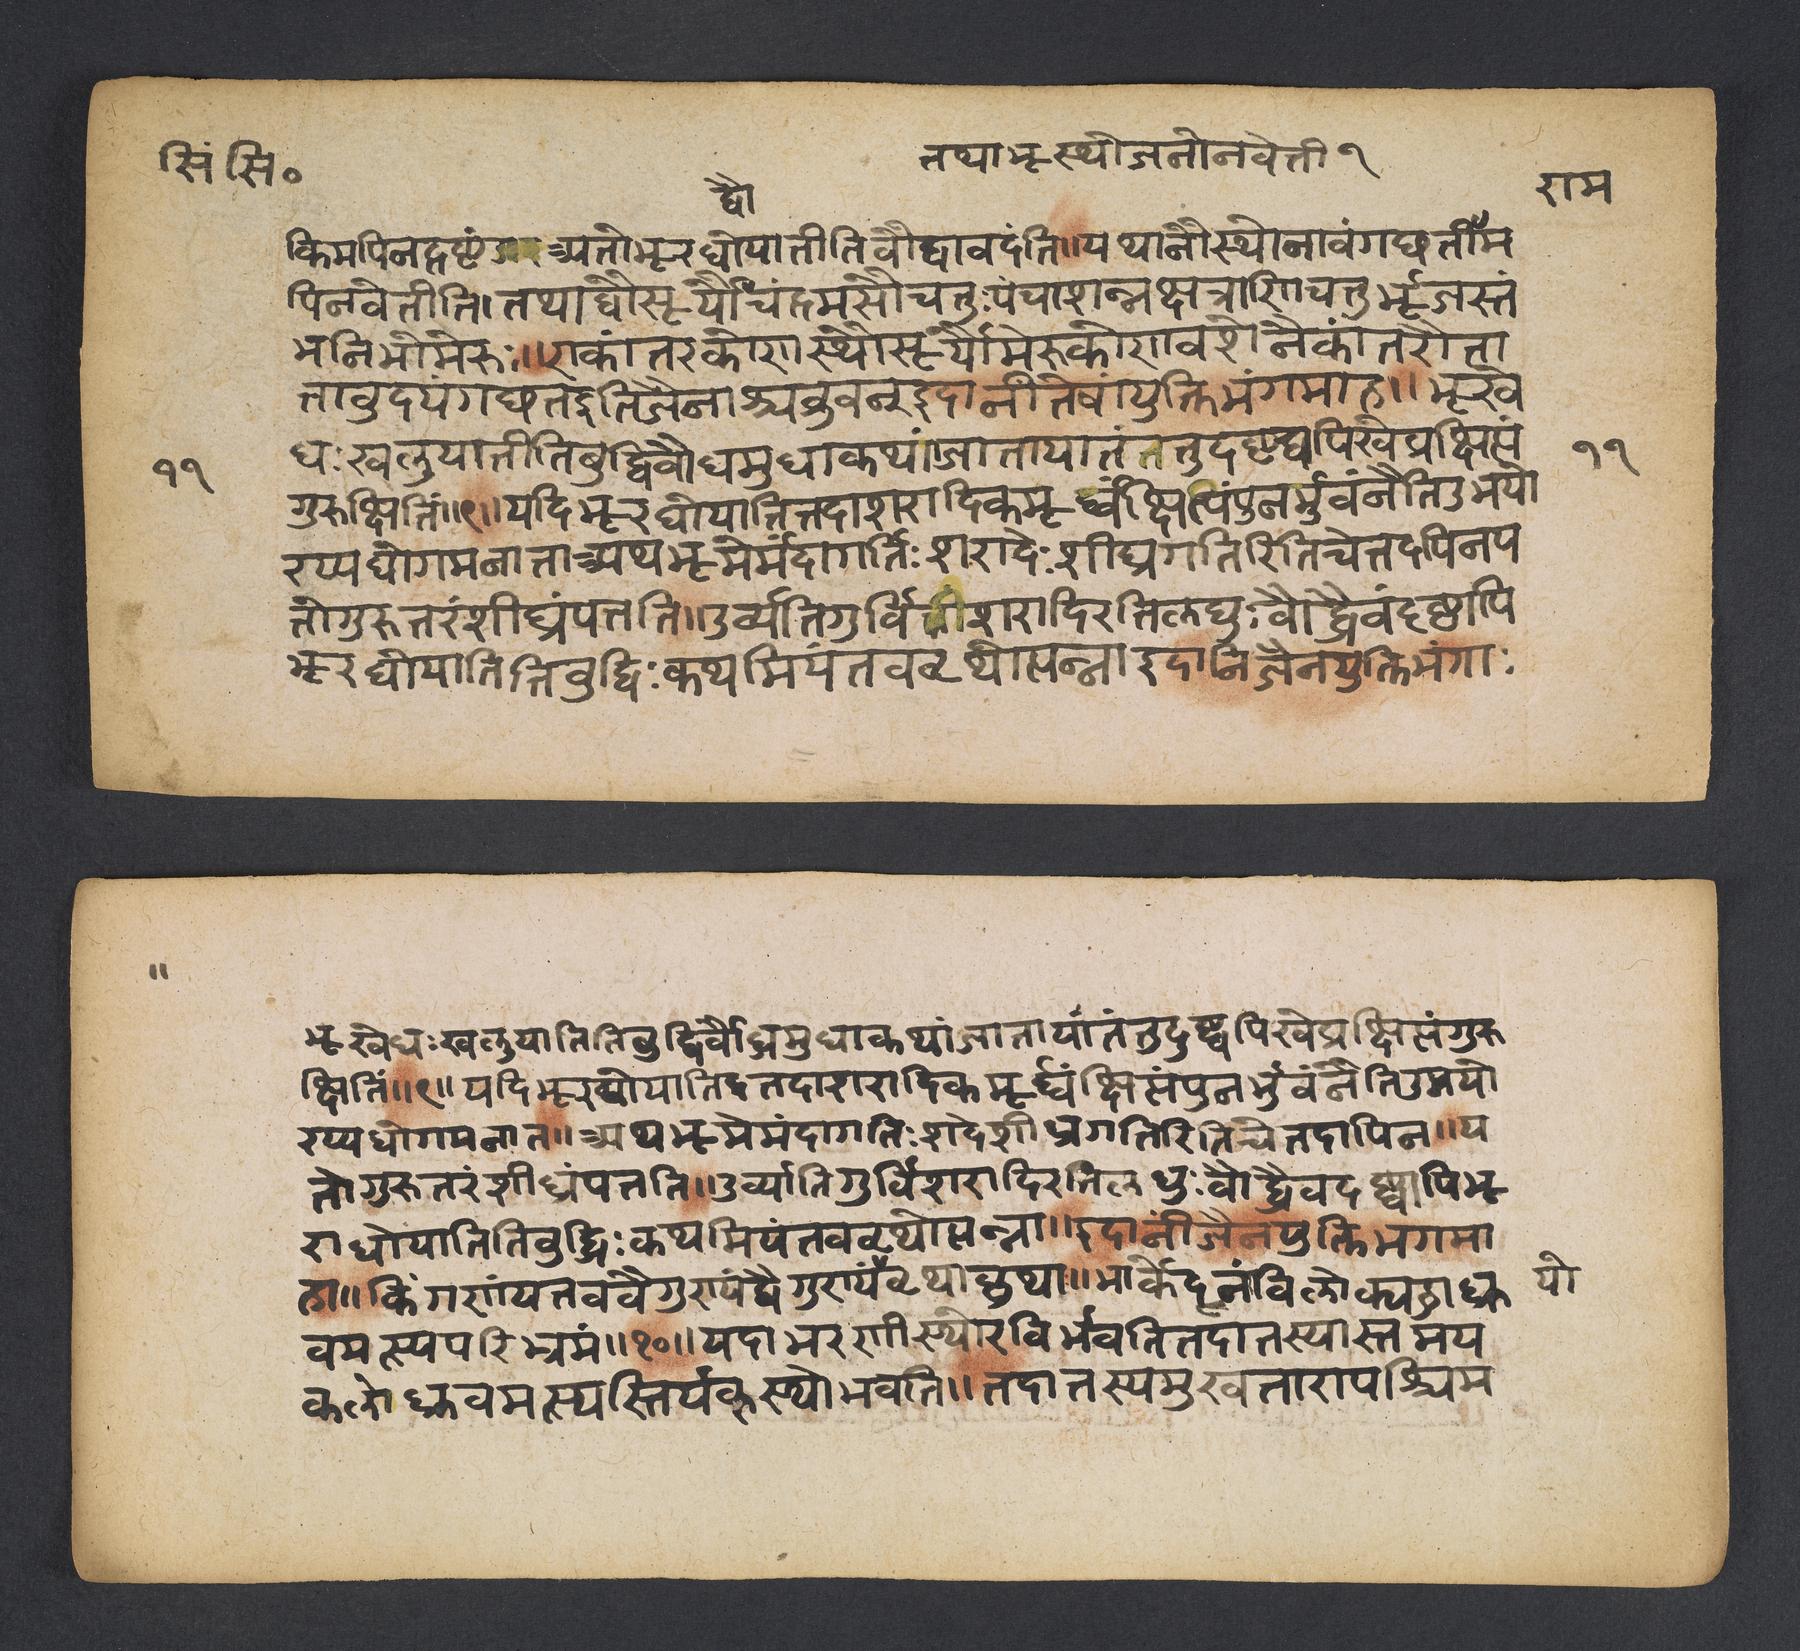 सिं सि०
तथाभूस्थोजनोनवेत्ती १
राम
द्वौ
किमपिनदृष्टं अतोभूरधोयातीतिबौद्धावदंति॥यथानौस्थोनावंगछतींम
पिनवेतीति।तथाद्वौसूर्यौचंद्रमसौचतुःपंचाशन्नक्षत्राणिचतुर्भूजस्तं
भनिभोमेरुः॥एकांतरकोणस्थौसूर्यौमेरुकोणवशेनैकांतरौता
तावुदयंगछतइतिजैनाअब्रुवन्इदानीतेषांयुक्तिभंगमाह॥भूखे
११
धःखलुयातीतिबुद्धिर्बौधमुधाकथंजातायातंतत्तुदष्ट्वापिखेप्रक्षिप्तं
११
गुरुक्षितिं॥९॥यदिभूरधोयातितदाशरादिकमूर्ध्वंक्षिप्तंपुनर्भुवंनैतिउभयो
रप्यधोगमनात्ताअथभूमेर्मंदागतिःशरादेःशीघ्रगतिरितिचेत्तदपिनय
तोगुरुतरंशीघ्रंपतति॥उर्व्यतिगुर्वि शरादिरतिलघुःबौद्धैवंदृष्ट्वापि
भूरधोयातितिबुद्धिःकथमियंतववृथोत्पन्नाइदानिजैनयुक्तिभंगाः
॥
भूखेधःखलुयातितिबुद्धिर्बौध्धमुधाकथंजातायातंतुदृष्ट्वपिखेप्रक्षिप्तंगुरु
क्षितिं॥९॥यदिभूरधोयाति तदाशरादिकमूर्ध्वंक्षिप्तंपुनर्भुवंनैतिउभयो
रप्यधोगमनात॥अथभूमेमंदागतिःशदेशीघ्रगतिरितिचेतदापिन॥य
तोगुरुतरंशीघ्रंपतति॥उर्व्यातिगुर्विशरादिरतिलघुःबौद्धैवदष्ट्वापिभू
राधोयातितिबुद्धिःकथमियंतववृथोत्पन्ना॥इदानींजैनयुक्तिभगमा
हा॥किंगण्यंतववैगुण्यंद्वैगुण्यंवृथाकृथा॥भार्केदूनंविलोक्यह्नाध्रु यो
वमत्स्यपरिभ्रमं॥१०॥यदाभरणीस्थोरविर्भवतितदातस्यास्तमय
कालेध्रुवमत्स्यस्तिर्यक्स्थोभवति॥तदातस्यमुखतारापश्चिम